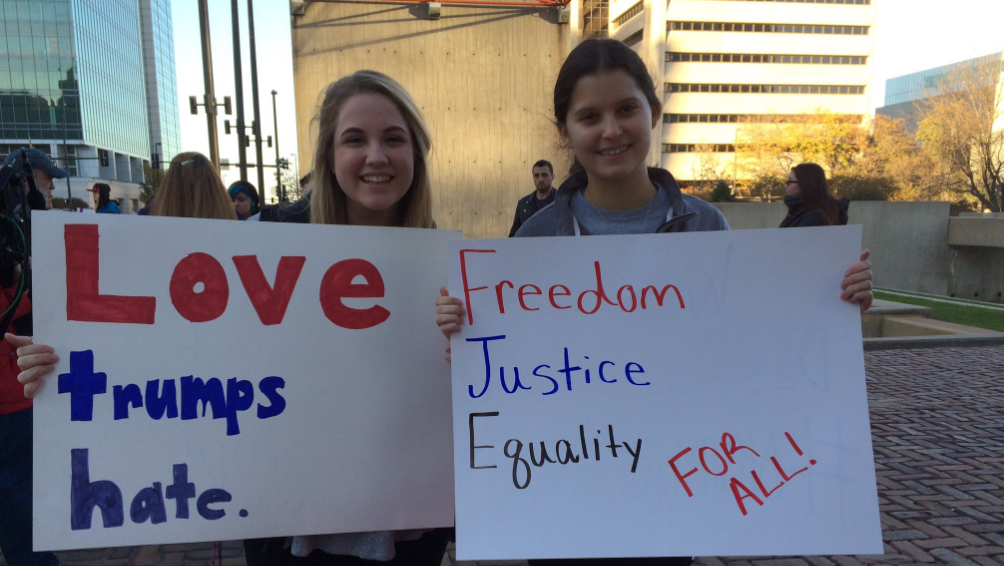 Love
trumps
hate.
Freedom
Justice
Equality
FOR
ALL!